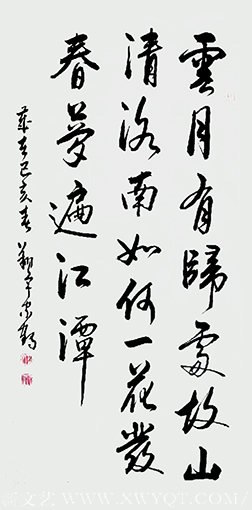 雲月有歸處故山
清洛南如何一花發
春夢遍江潭
歲在己亥春
WWW.XWYQT.COM